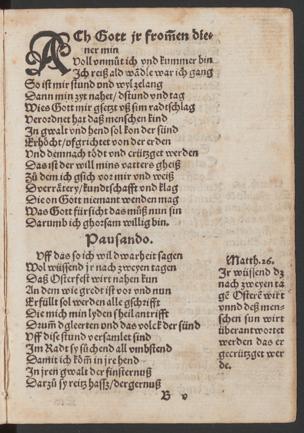 ACh Gott jr from̃en die-
ner min
Voll vnmůt ich vnd kummer bin
Ich reiß ald wãdle war ich gang
So ist mir stund vnd wyl zelang
Dann min zyt nahet / dstund vnd tag
Wies Gott mir gsetzt vß sim radtschlag
Verordnet hat daß menschen kind
In gwalt vnd hend sol kon der sünd
Erhöcht / vfgrichtet von der erden
Vnd demnach tödt vnd crützget werden
Das ist der will mins vatters gheiß
Zů dem ich gsich vor mir vnd weiß
Dverrätery / kundtschafft vnd klag
Die on Gott niemant wenden mag
Was Gott fürsicht das můß nun sin
Darumb ich ghorsam willig bin.
Pausando.
Vff das so ich wil dwarheit sagen
Wol wüssend jr nach zweyen tagen
Daß Osterfest wirt nahen kun
An dem wie gredt ist vor vnd nun
Erfüllt sol werden alle gschrifft
Die mich min lyden sheil antrifft
Drum̃ dgleerten vnd das volck der sünd
Vff dise stund versamlet sind
Im Radt sy sůchend all vmbstend
Damit ich kõm in jre hend
In jren gwalt der finsternuß
Darzů sy reitz hassz / der gernuß
Matth. 26.
Jr wüssend dz
nach zweyen ta
gẽ Osterẽ wirt
vnnd deß men-
schen sun wirt
überantwortet
werden das er
gecrützget wer
de.
B v